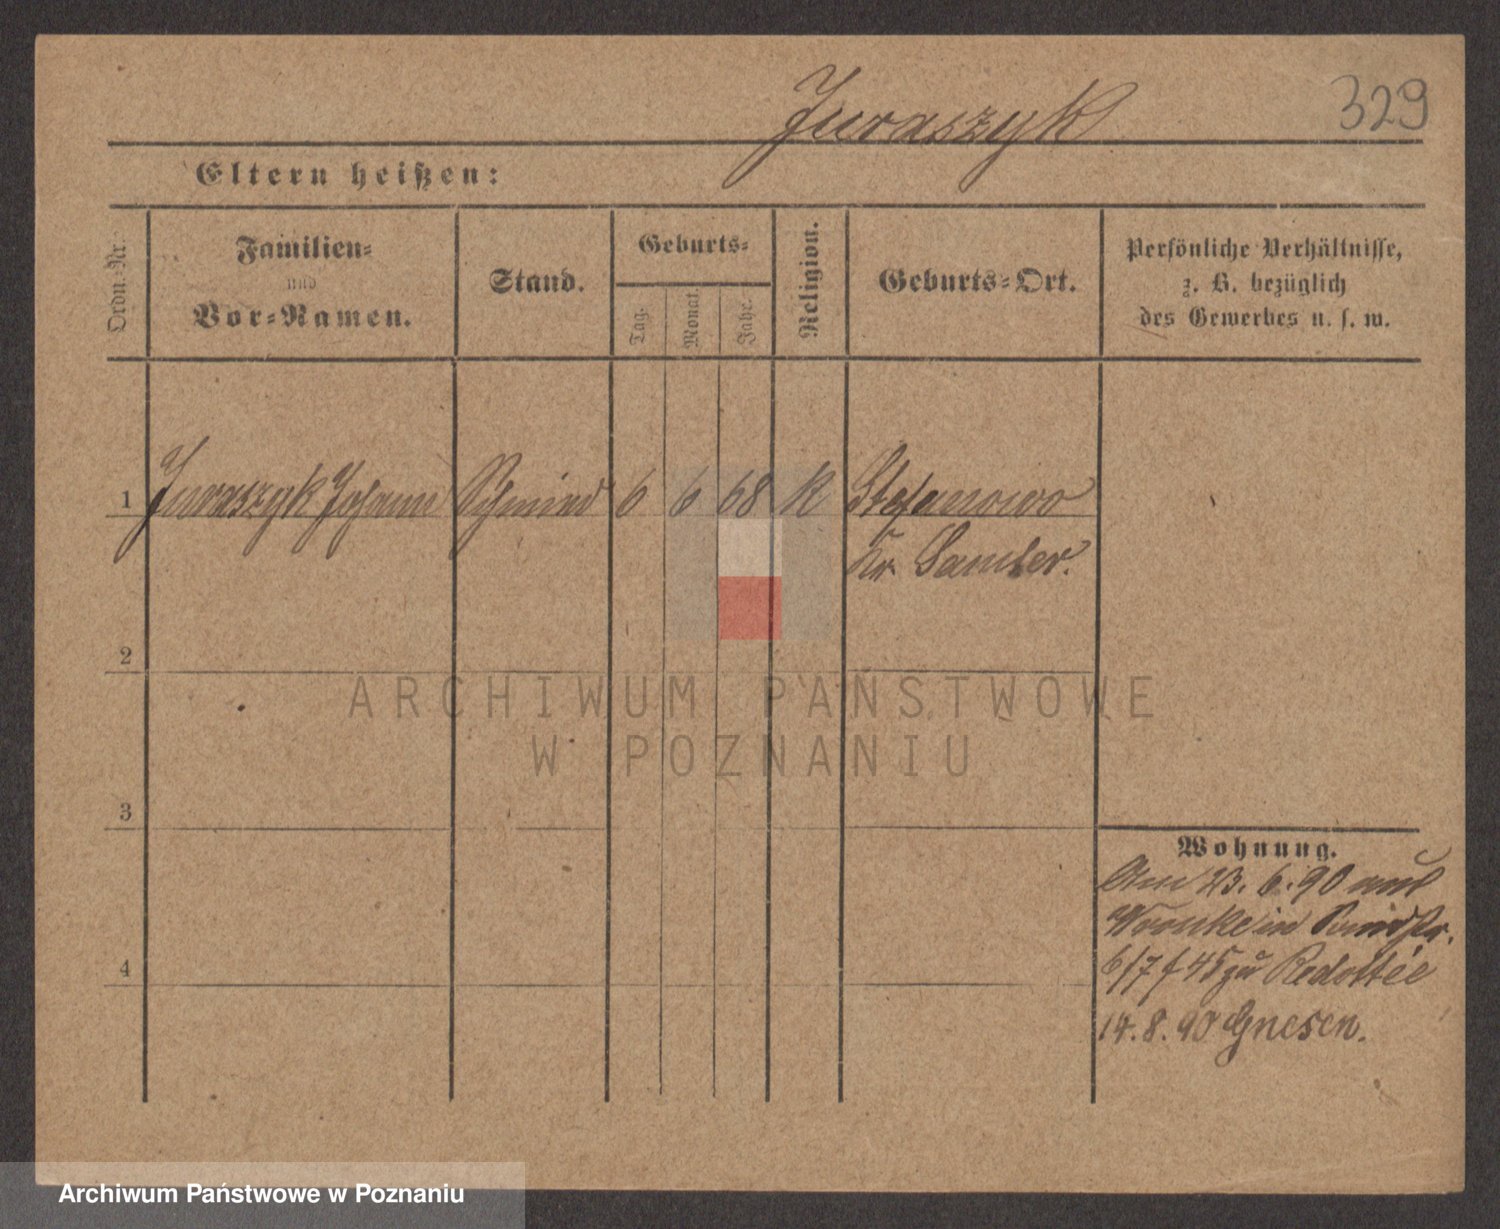 Juraszyk 329
Eltern heißen:
Ordn.-Nr.
Familien-
und
Vor-Namen.
Stand.
Geburts-
Tag.
Monat.
Jahr.
Religion.
Geburts-Ort.
Persönliche Verhältnisse,
z. B. bezüglich
des Gewerbes u. s. w.
1 Juraszyk Johann Schmied 6 6 68 K Stefanowo
Kr. Samter.
2
3
4
Wohnung.
Am 23. 6. 90 aus
Wronke in
6/7 f 45 zu
14. 8. 90 Gnesen.
ARCHIWUM PAŃSTWOWE
W POZNANIU
Archiwum Państwowe w Poznaniu